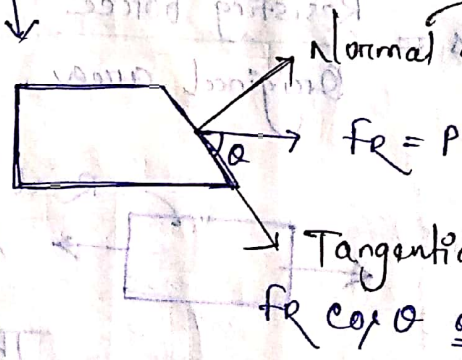 Normal
θ
fR = P
Tangentia
fR cos θ